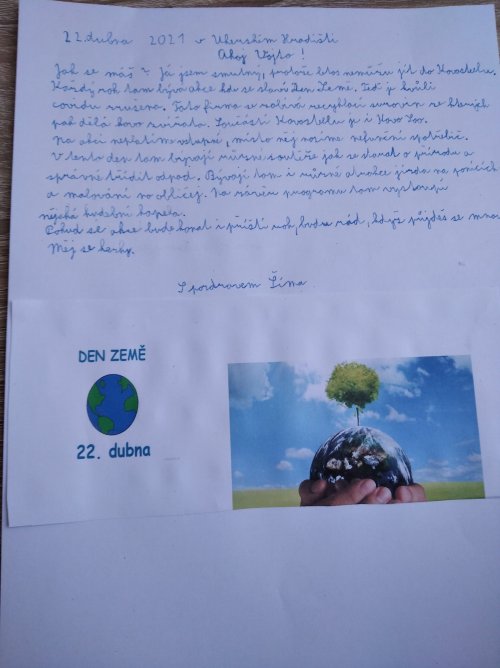 22. dubna 2021 v Uherském Hradišti
Ahoj Vojto!
Jak se máš? Já jsem smutný, protože letos nemůžu jít do Kovosteelu.
Každý rok tam bývá akce kdy se slaví Den Země. Teď je kvůli
covidu zrušena. Tato firma se zabývá recyklací surovin ze kterých
pak dělá kovozvířata. Součástí Kovosteelu je i Kovo Zoo.
Na akci neplatíme vstupné, místo něj nosíme nefunkční spotřebič.
V tento den tam bývají různé soutěže jak se starat o přírodu a
správně třídit odpad. Bývají tam i různé atrakce jízda na ponících
a malování na obličej. Na závěr programu tam vystupuje
nějaká hudební kapela.
Pokud se akce bude konat i příští rok, budu rád, když přijdeš se mnou
Měj se hezky.
S pozdravem Šíma
DEN ZEMĚ
22. dubna